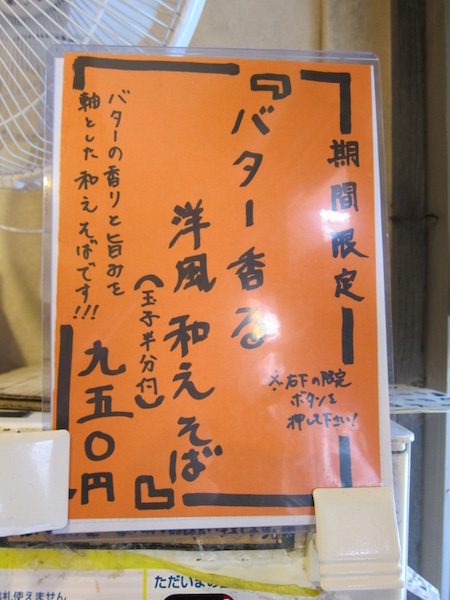 期間限定
※右下の限定
ボタンを
押して下さい!
『バター香る
洋風和えそば』
(玉子半分付)
バターの香りと旨みを
軸とした和えそばです!!!
九五〇円
札使えません
ただいまの